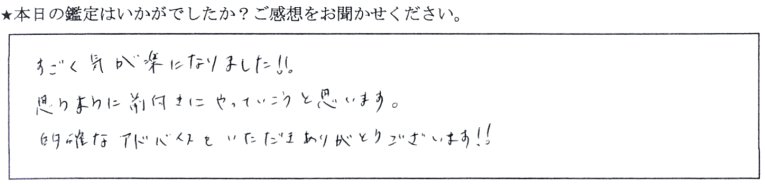 ★本日の鑑定はいかがでしたか？ご感想をお聞かせください。
すごく気が楽になりました!!
思うままに前向きにやっていこうと思います。
的確なアドバイスをいただきありがとうございます!!